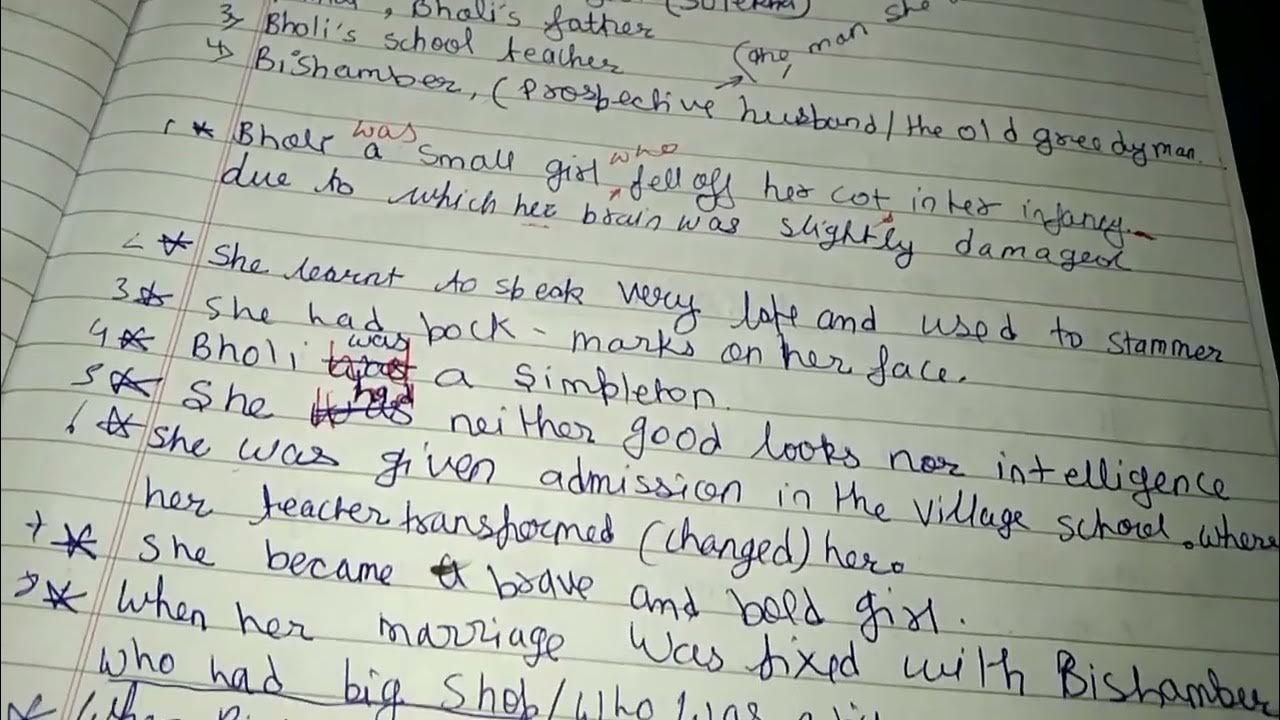 , Bholi's father
3) Bholi's school teacher (one, man she
4) Bishamber, (Prospective husband/the old greedy man.
1 * Bholi was a small girl who fell off her cot in her infancy
due to which her brain was slightly damaged
* She learnt to speak very late and used to stammer
3 * She had pock-marks on her face.
4 * Bholi was a simpleton.
5 * She had neither good looks nor intelligence
6 * She was given admission in the village school. where
her teacher transformed (changed) her.
7 * She became a brave and bold girl.
* When her marriage was fixed with Bishamber
who had big shop/who was